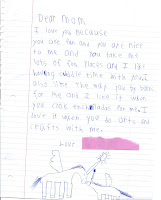 Dear Mom
I love you because
you are fun and you are nice
to me and you take me
lots of fun places and I like
having cuddle time with you I
also like the way you by books
for me and I like it when
you cook enchiladas for me. I
love it when you do arts and
crafts with me.
Love